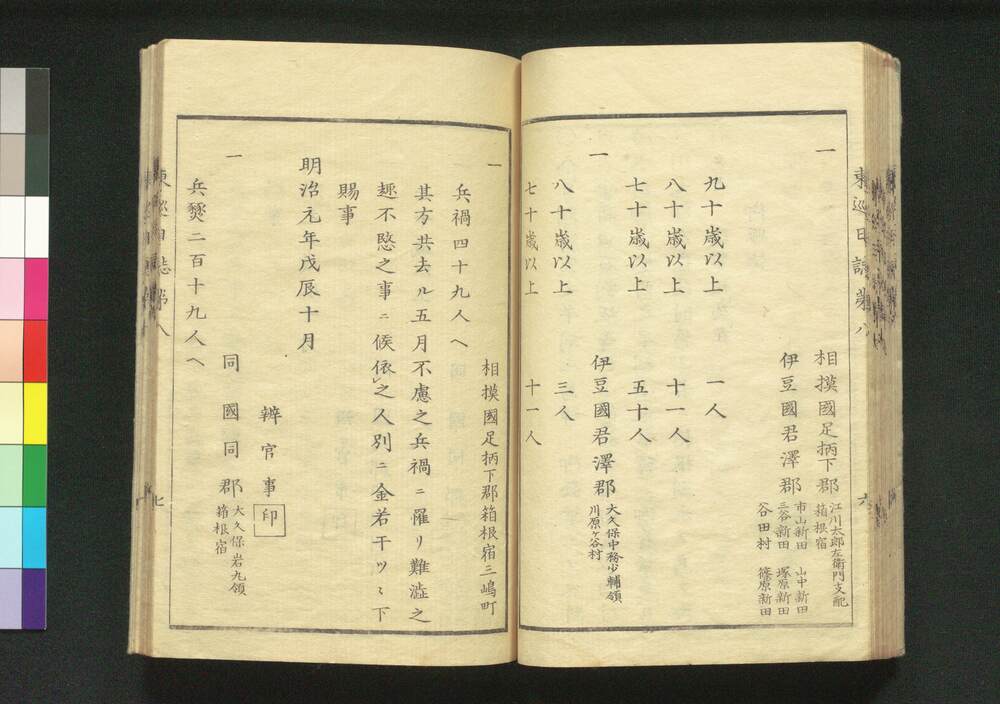 東巡日誌第八
六
一
相摸國足柄下郡
江川太郎左衛門支配
箱根宿
伊豆國君澤郡
市山新田　山中新田
三谷新田　塚原新田
谷田村　篠原新田
九十歳以上　一人
八十歳以上　十一人
七十歳以上　五十人
一
伊豆國君澤郡
大久保中務少輔領
川原ヶ谷村
八十歳以上　三人
七十歳以上　十一人
一
相摸國足柄下郡箱根宿三嶋町
兵禍四十九人ヘ
其方共去ル五月不慮之兵禍ニ罹リ難澁之
趣不愍之事ニ候依之人別ニ金若干ツヽ下
賜事
明治元年戊辰十月
辨官事印
一
同國同郡
大久保岩丸領
箱根宿
兵燹二百十九人ヘ
東巡日誌第八
七